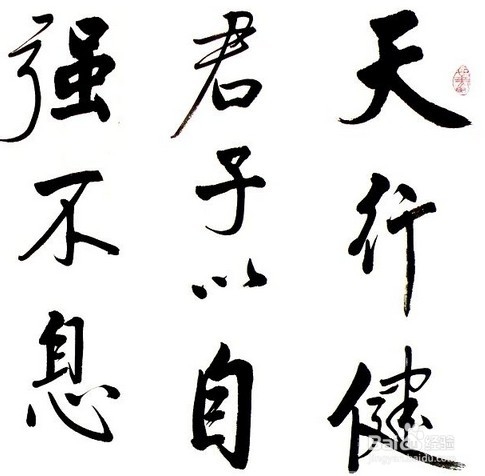 天行健
君子以自
强不息
Baidu经验
jingyan.baidu.com